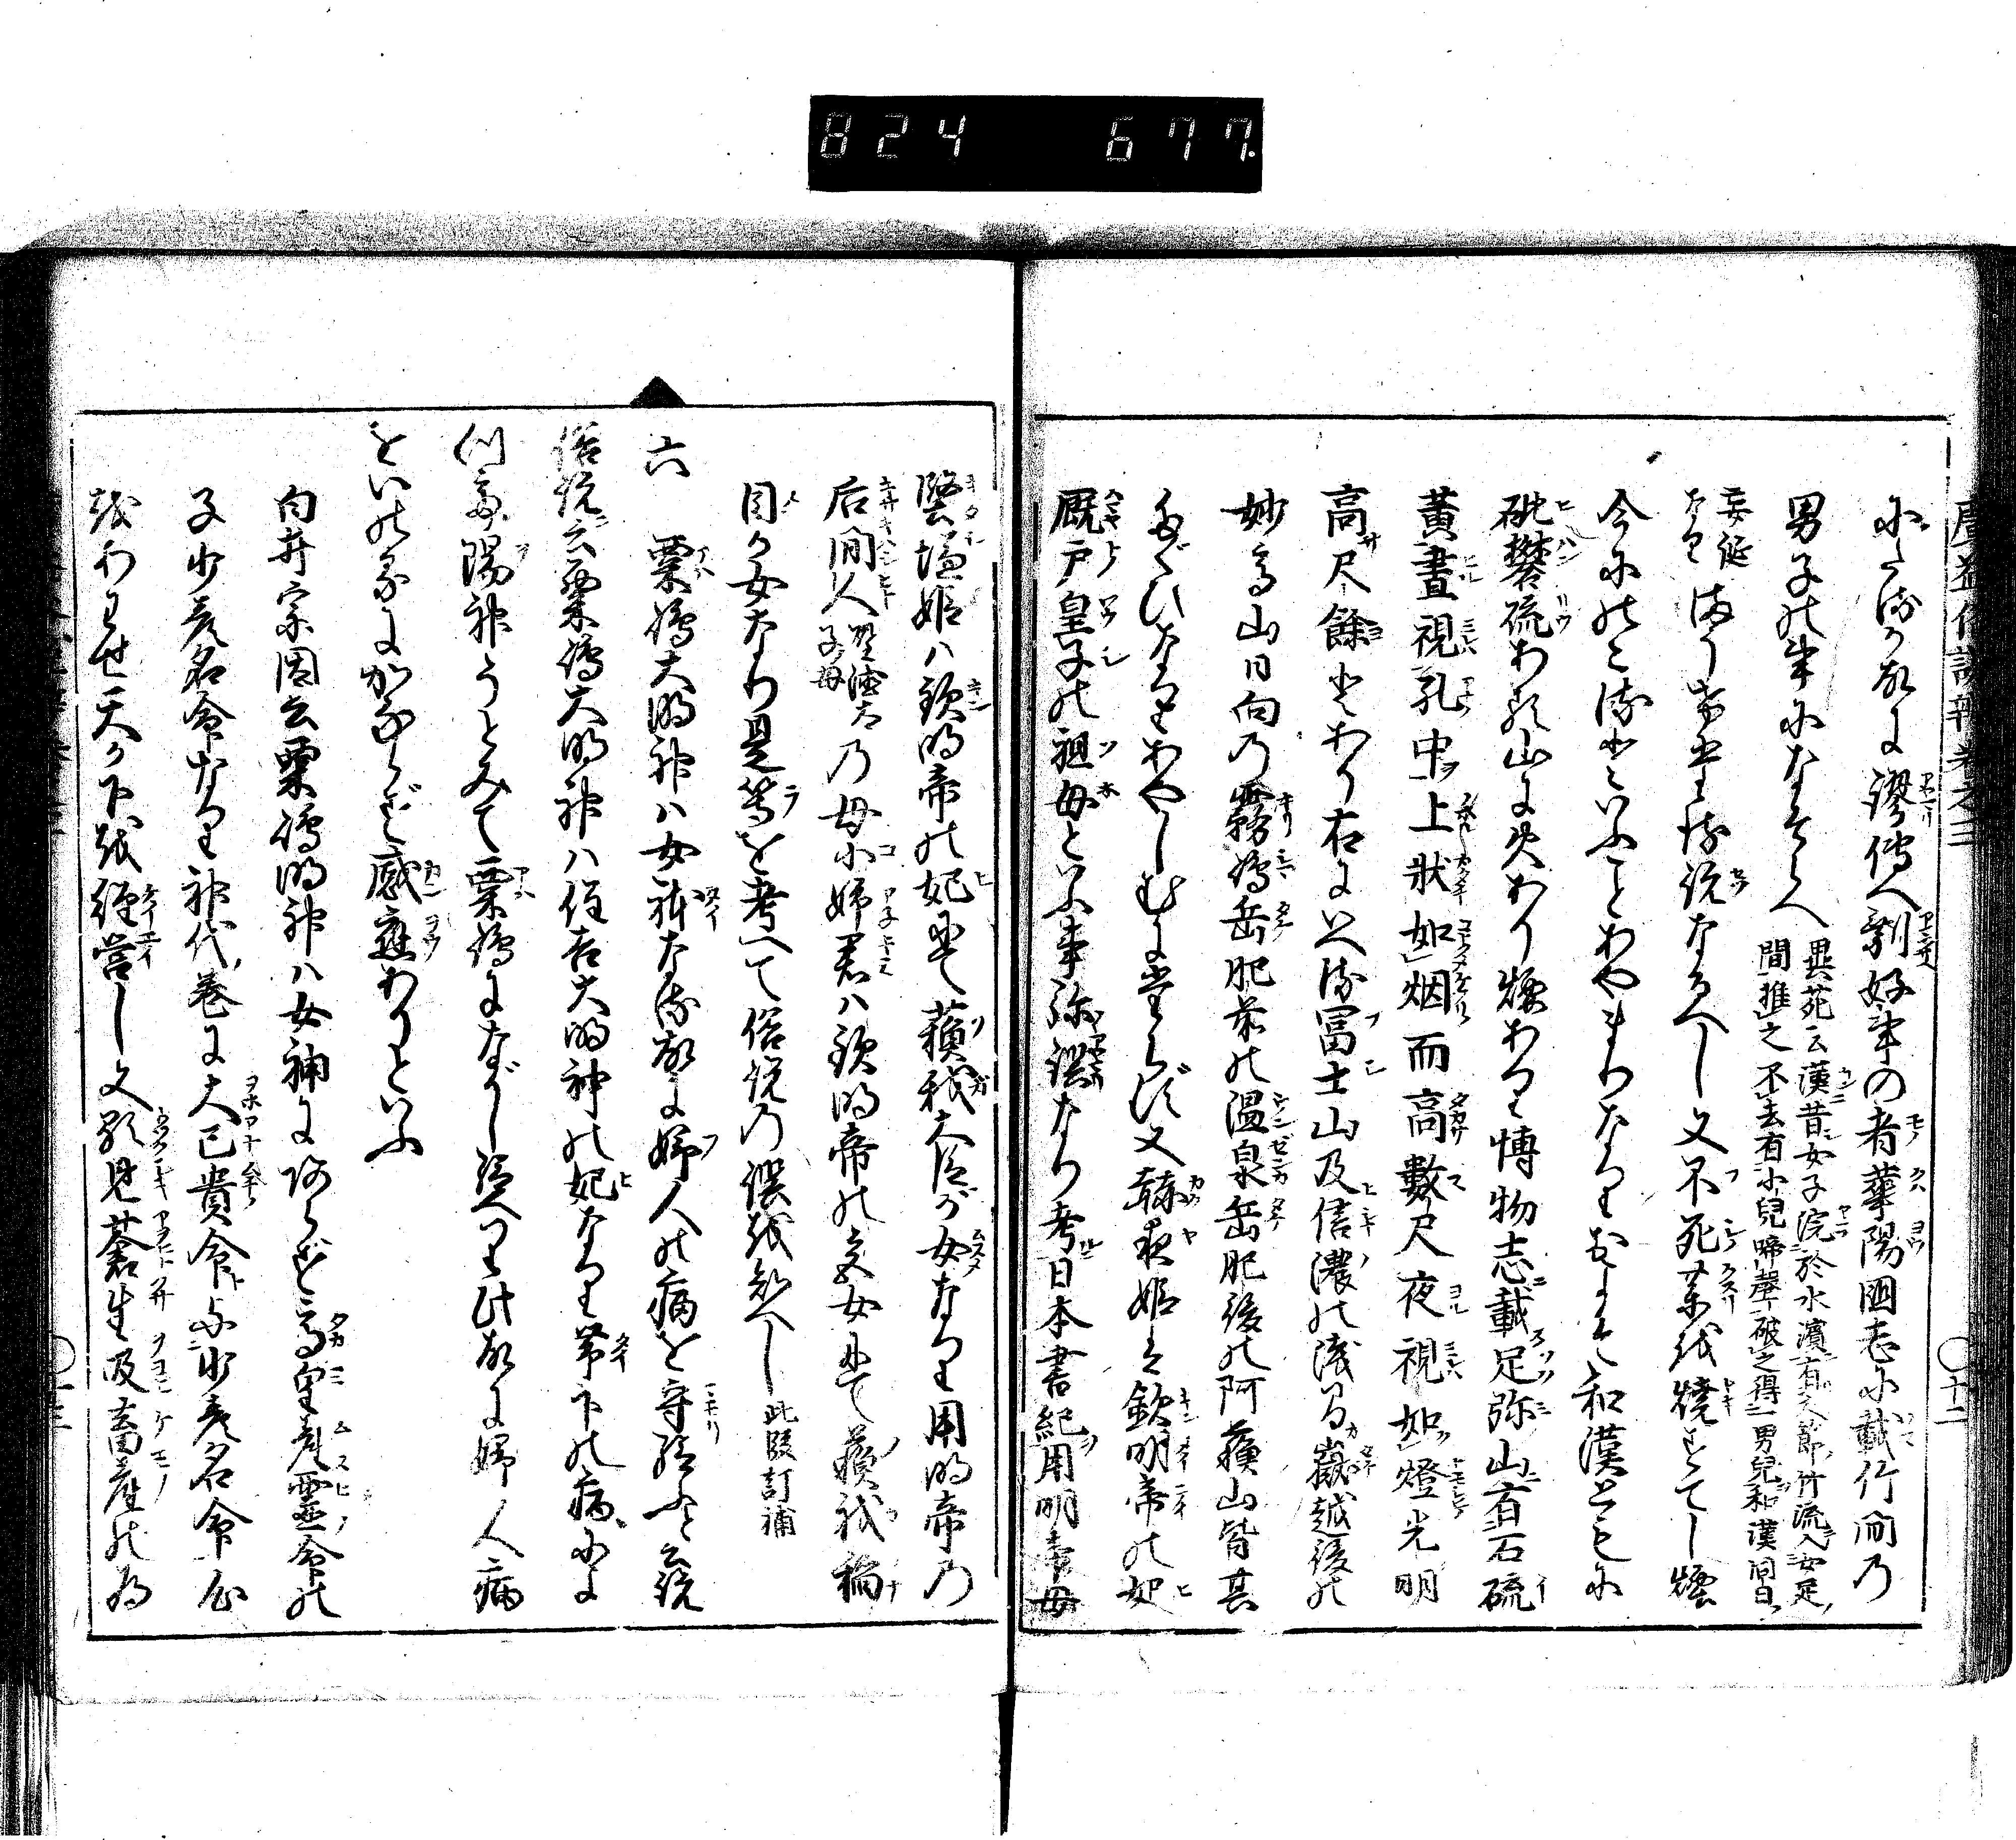 824 677.
廣益俗説辨
十二
にたるか故に謬傳へ剰好事の者華陽國志に載竹間乃
男子の事になそらへ
異苑云漢昔女子浣於水濱有三節竹流入女足
間推之不去有小兒啼聲破之得一男兒和漢同日
妄誕
なり
説なるへし又不死薬を焼すてし煙
今にのこるといふことあやまりなりおよそ和漢ともに
砒礬硫ある山に火あり煙あり博物志載足弥山有石硫
黄晝視孔中上狀如烟而高數尺夜視如燈光明
高尺餘とあり右にいへる冨士山及信濃の浅間嶽越後の
妙高山日向乃霧嶋岳肥前の温泉岳肥後の阿蘓山皆其
たぐひなりあやしむに堂らず又赫夜姫を欽明帝の妃
厩戸皇子の祖母といふ事弥誤なり考日本書紀用明帝母
堅塩姫ハ欽明帝の妃にて蘓我大臣が女なり用明帝乃
后間人
聖徳太
子母
乃母小姉君ハ欽明帝の妃にて蘓我稲
目か女なり是等を考へて俗説乃誤を知へし
此段訂補
六 粟嶋大明神ハ女體なる故に婦人の病を守給ふと云説
俗説云粟嶋大明神ハ住吉大明神の妃なり帯下の病に
陽神うとみて粟嶋にながし給へり此故に婦人病
をいのるにかならず感應ありといふ
向井宗因云粟嶋明神ハ女神にあらず高皇産霊命の
子少彦名命なり神代巻に大己貴命与少彦名命
をあわせ天か下を經營し又顕見蒼生及畜産の為